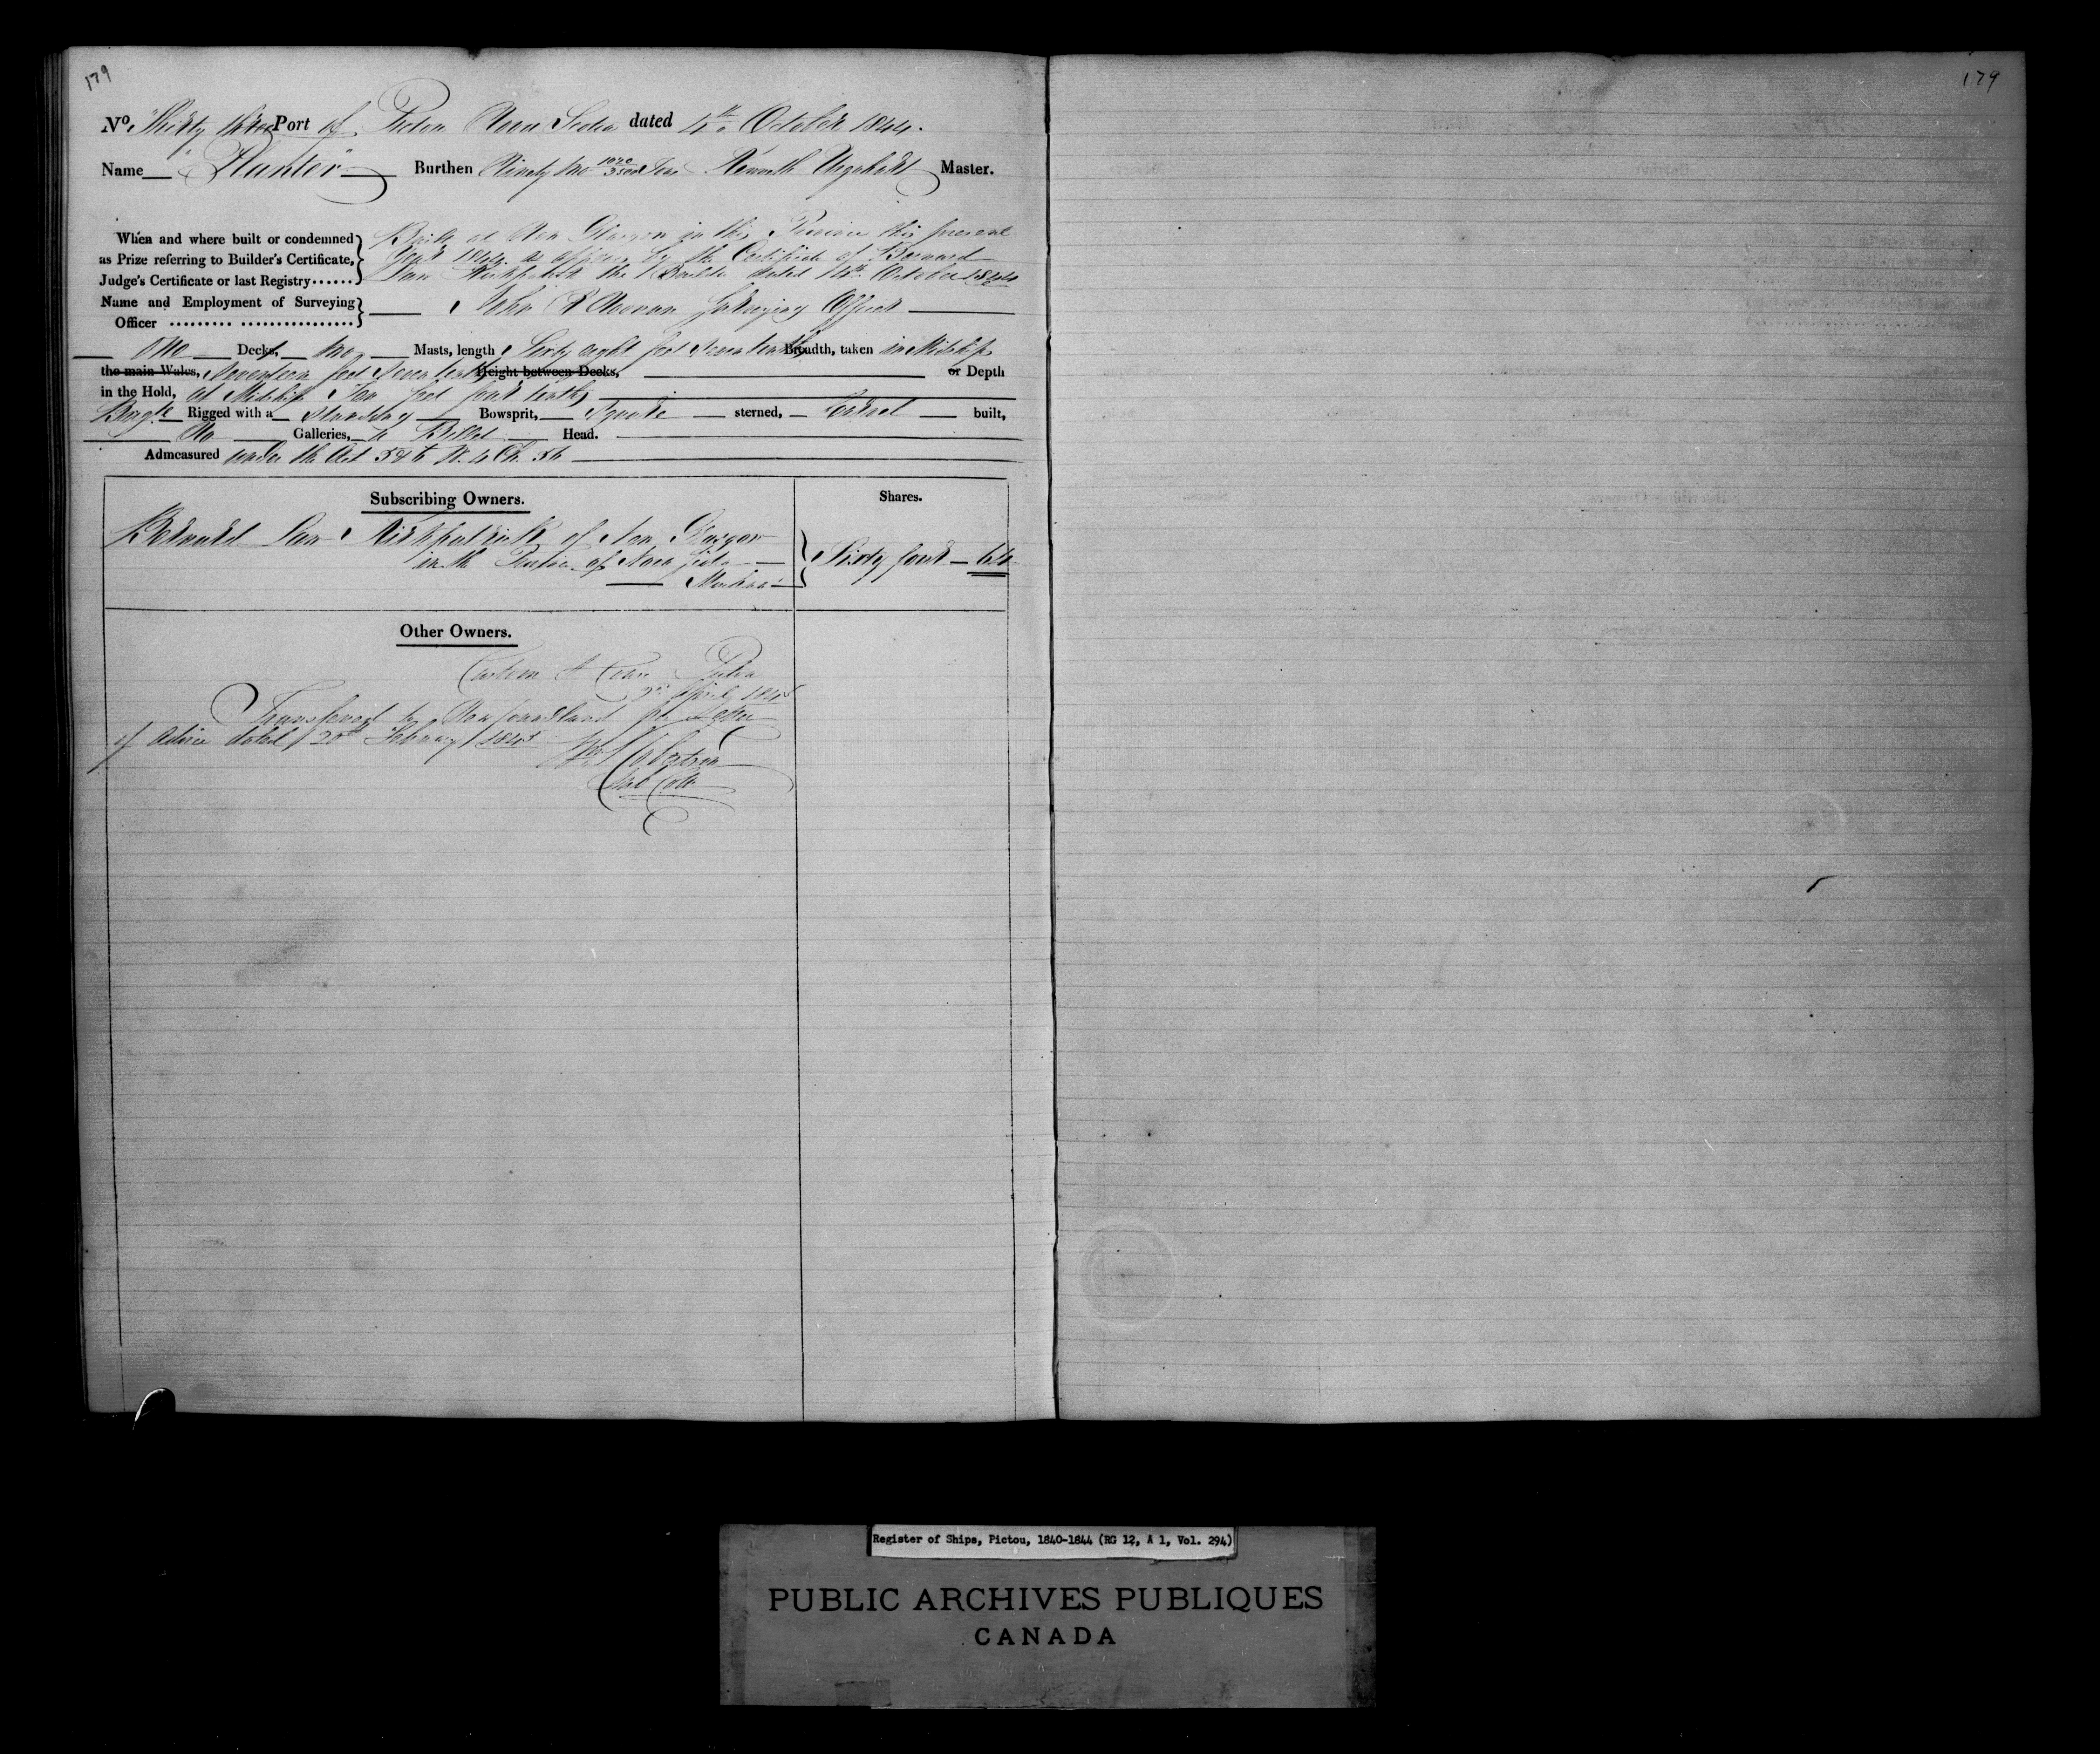 179
179
No. Thirty three Port of Pictou Nova Scotia dated 4th October 1844.
Name "Hunter" Burthen Ninety two 1020/3500 Tons Kenneth Urquhart Master.
When and where built or condemned as Prize referring to Builder's Certificate, Judge's Certificate or last Registry......
Built at New Glasgow in this Province this present
Year 1844. as appears by the Certificate of Bernard
Law Kirkpatrick the Builder dated 14th October 1844
Name and Employment of Surveying Officer
John Noonan Surveying Officer
One Deck, two Masts, length Sixty eight feet Seven tenths Breadth, taken in Midships
the main Wales, Seventeen feet Seven tenths Height between Decks, or Depth
in the Hold, at Midships Ten feet four tenths
Brigt. Rigged with a Standing Bowsprit, Square sterned, Carvel built,
No Galleries, a Billet Head.
Admeasured under the Act 5 & 6 W. 4 Ch. 56
Subscribing Owners. Shares.
Bernard Law Kirkpatrick of New Glasgow
in the Province of Nova Scotia
Sixty four — 64
Other Owners.
Custom House Pictou
April 1845
Transferred to Newfoundland per Letter
of Advice dated 20th February 1845
Register of Ships, Pictou, 1840-1844 (RG 12, A 1, Vol. 294)
PUBLIC ARCHIVES PUBLIQUES
CANADA